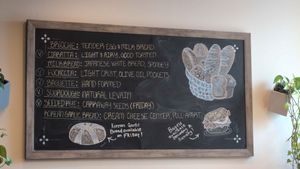 BRIOCHE: TENDER EGG & MILK BREAD
CIABATTA: LIGHT & AIRY, GOOD TOASTED
MILK BREAD: JAPANESE WHITE BREAD, SPONGEY
FOCACCIA: LIGHT CRUST, OLIVE OIL POCKETS
BAGUETTE: HAND FORMED
SOURDOUGH: NATURAL LEVAIN
SEEDED RYE: CARAWAY SEEDS (FRIDAY)
KOREAN GARLIC BREAD: CREAM CHEESE CENTER, PULL-APART
Korean Garlic
Bread available
on FRIDAY!